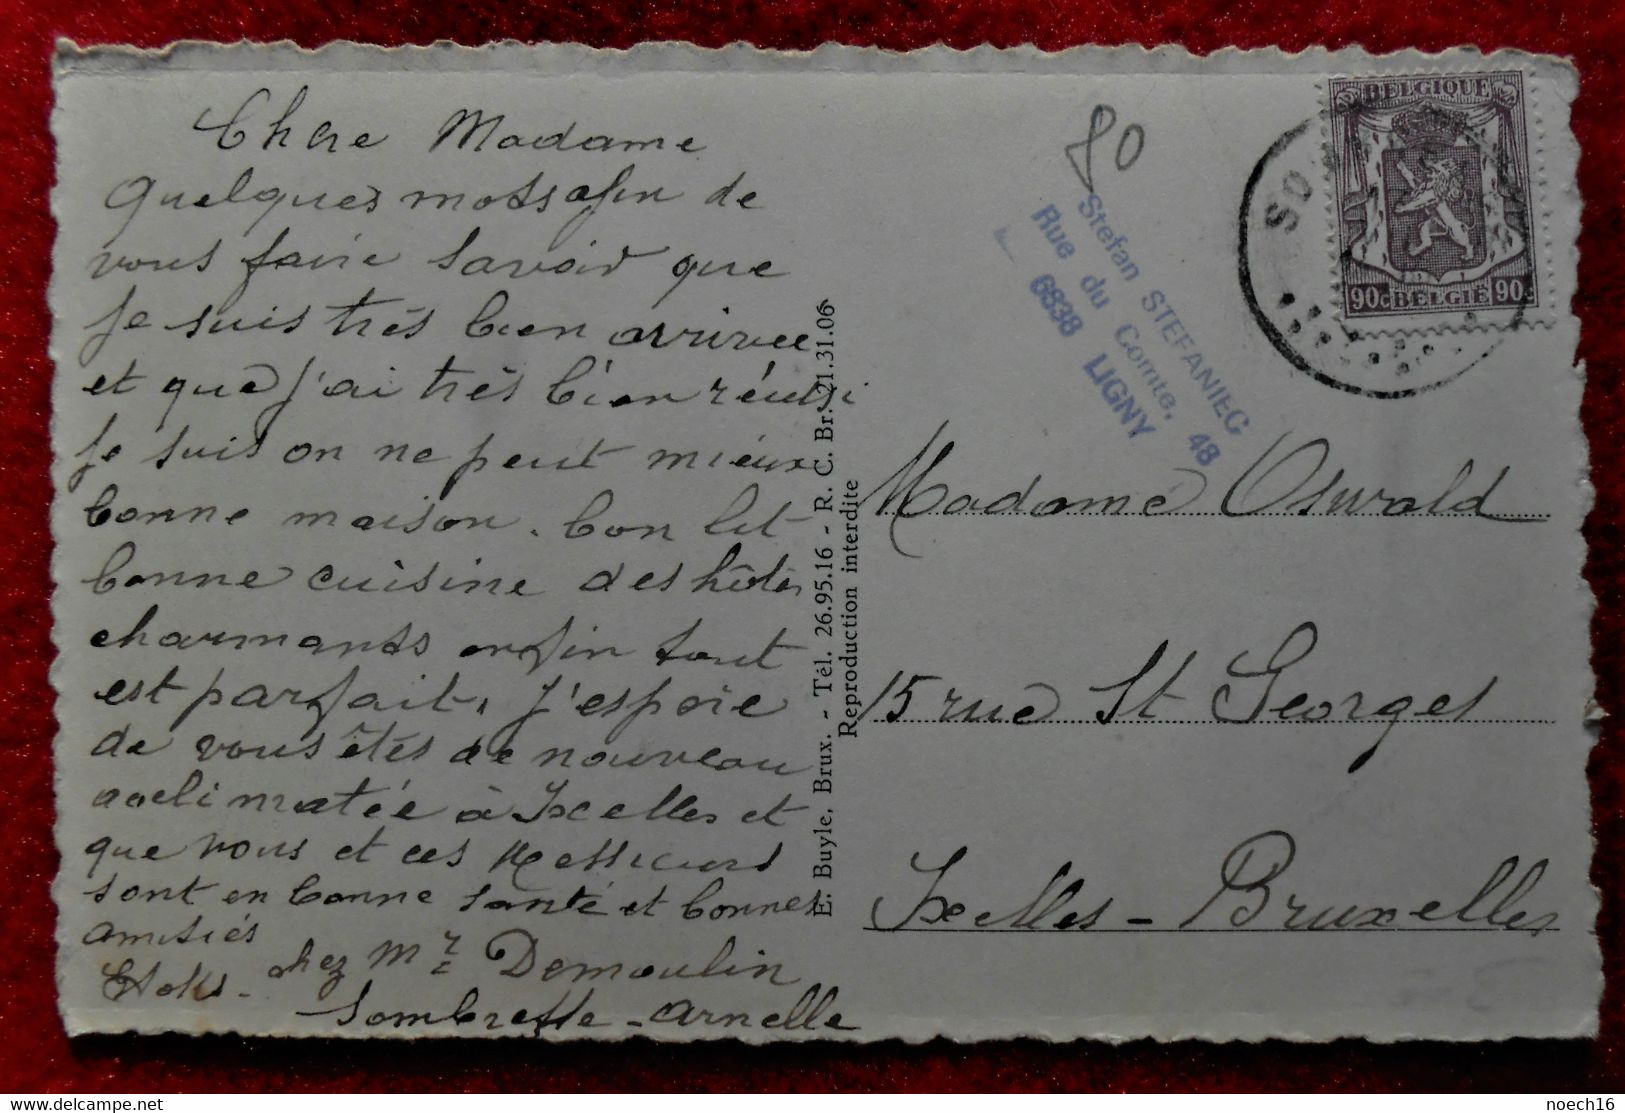 Chère Madame
quelques mots afin de
vous faire savoir que
je suis très bien arrivée
et que j'ai très bien réussi
je suis on ne peut mieux
bonne maison. bon lit
bonne cuisine des hôtes
charmants enfin tout
est parfait. J'espère
de vous êtes de nouveau
aclimatée à Ixelles et
que vous et ces Messieurs
sont en bonne santé et bonnes
amitiés
chez Mr Demoulin
Sombreffe - Arnelle
E. Buyle, Brux. - Tél. 26.95.16 - R. C. Br. 21.31.06
Reproduction interdite
80
Stefan STEFANIEC
Rue du Comte, 48
6838 LIGNY
BELGIQUE
90c BELGIË 90c
SO
Madame Oswald
15 rue St Georges
Ixelles - Bruxelles
noech16